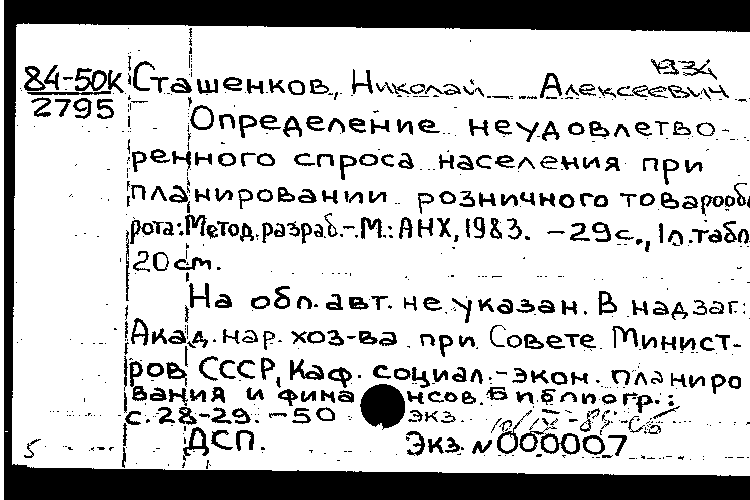 1934
84-50К Сташенков, Николай Алексеевич
2795
Определение неудовлетво-
ренного спроса населения при
планировании розничного товарооб
рота: Метод. разраб.-М.: АНХ, 1983. -29с., 1л. табл
20 см.
На обл. авт. не указан. В надзаг:
Акад. нар. хоз-ва при Совете Минист-
ров СССР, Каф. социал.-экон. планиро
вания и фина нсов. Библиогр.:
с. 28-29. -50 экз.
5 ДСП. Экз. №000007